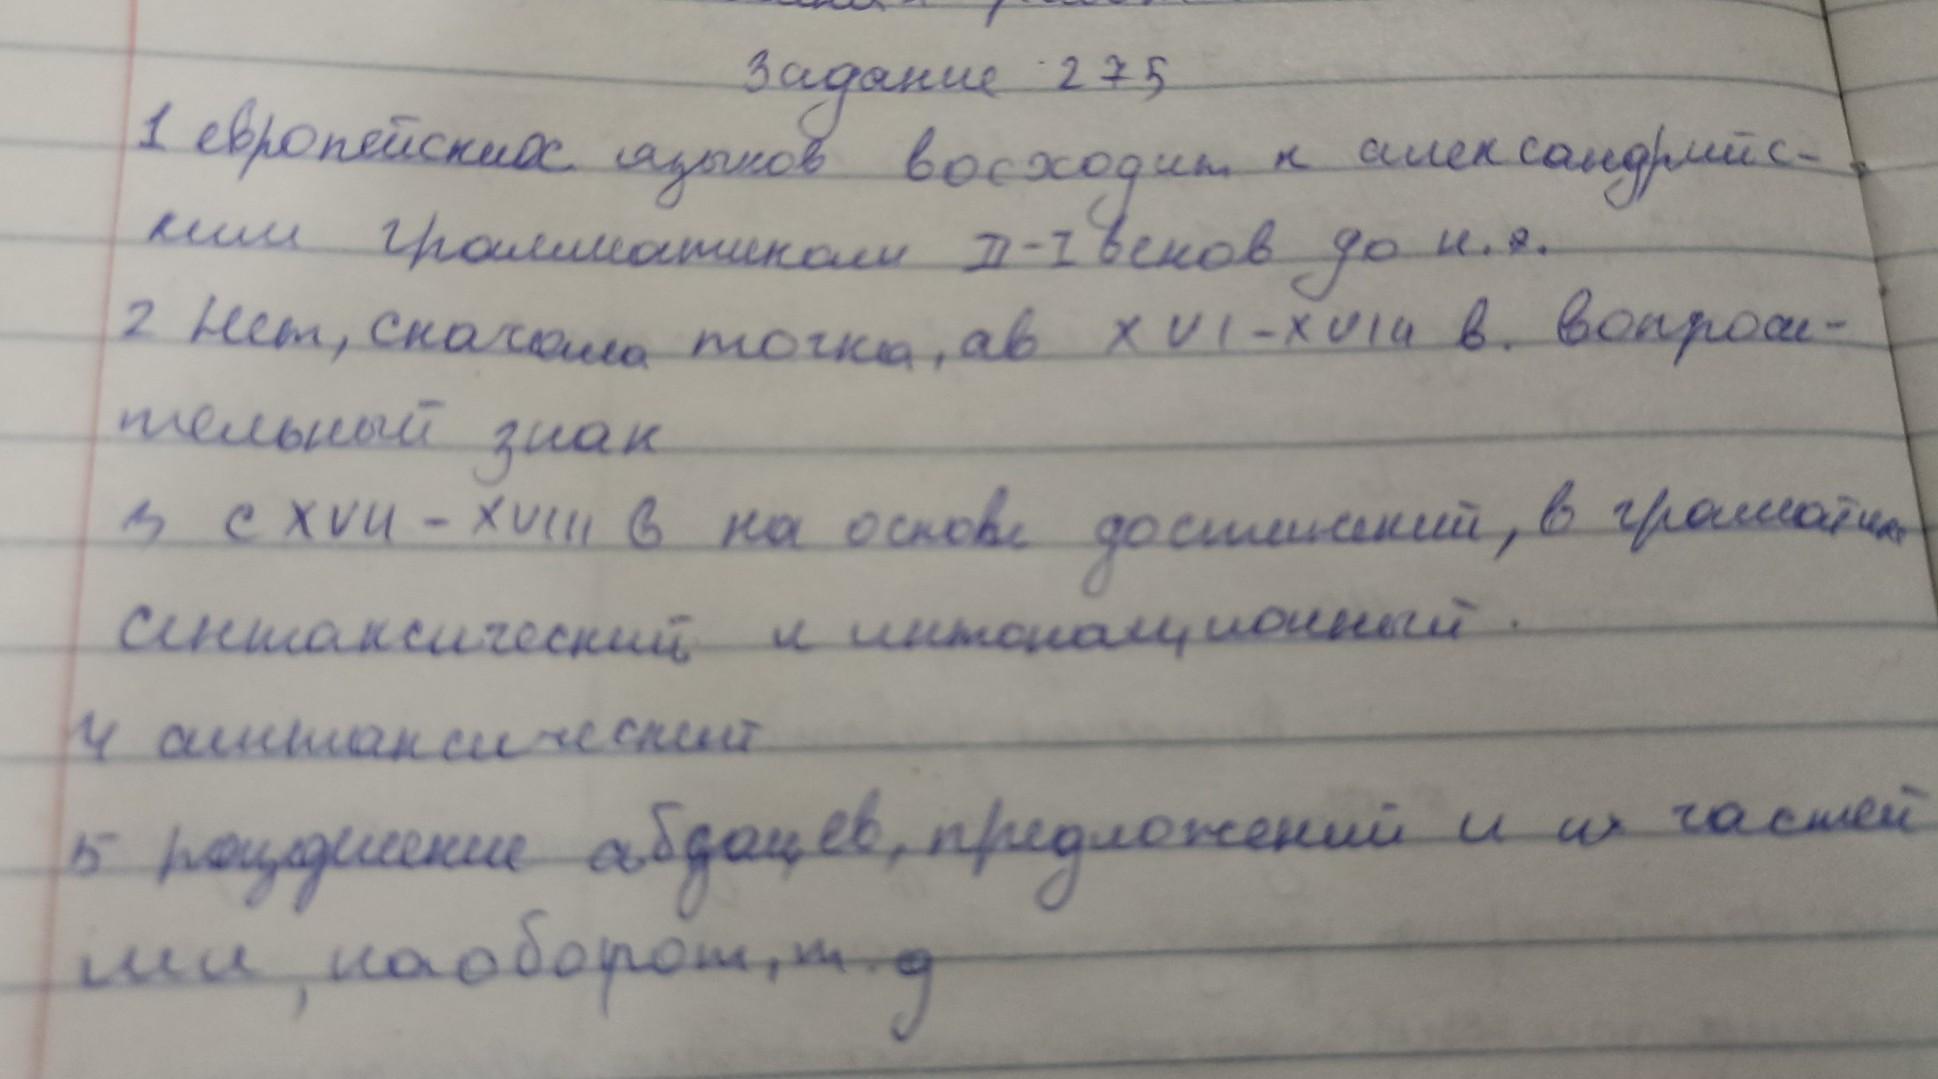 Задание 275
1 европейских языков восходит к александрийс-
ким грамматикам II-I веков до н.э.
2 Нет, сначала точка, ав XVI-XVIII в. вопроси-
тельный знак
3 с XVII - XVIII в на основе достижений, в граматике
синтаксический и интонационный.
4 синтаксический
5 абдацев, предложений и их частей
или, наоборот, т.д